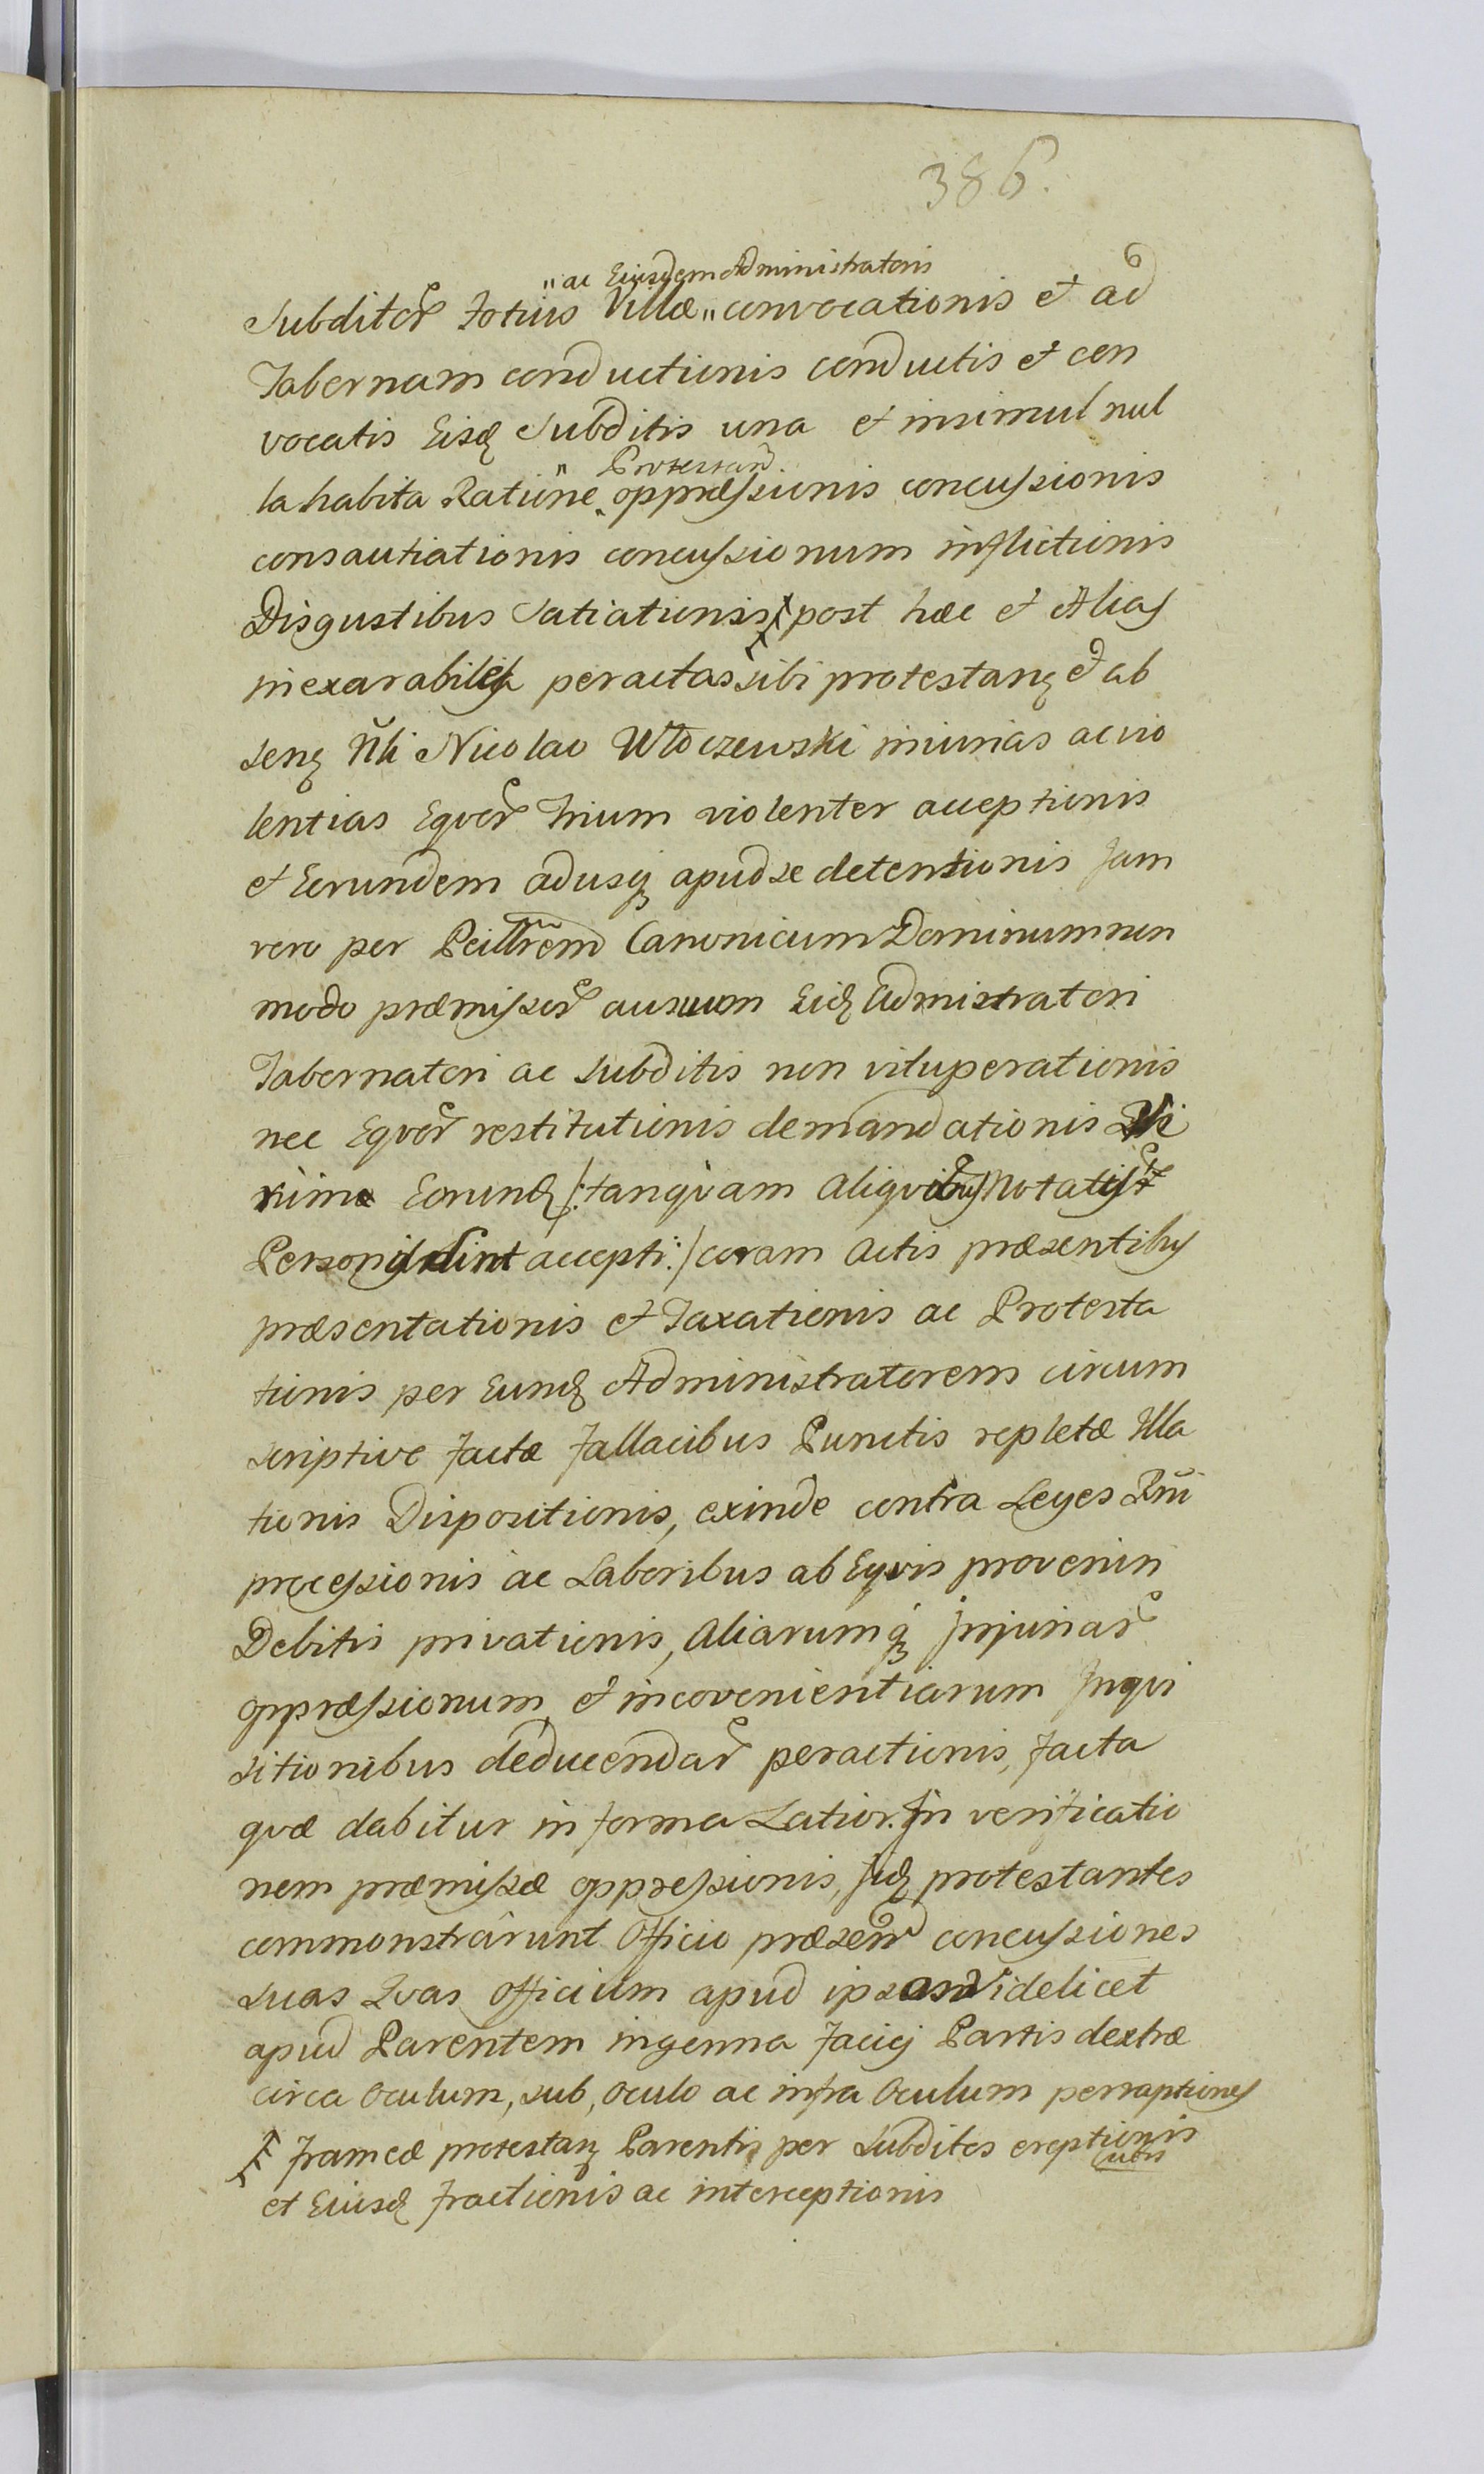 386.
"ac Eiusdem Administratoris
Subditor Totius Villæ " convocationis et ad
Tabernam conductionis conductis et con
vocatis Eisd Subditis una et insimul nul
" Protestan
la habita Ratione „ oppræssionis concussionis
consautiationis concussionum inflictionis
Disgustibus Satiationis post hæc et Alias
inexarabiles peractas sibi protestanq et ab
senq Nli Nicolao Włoczewski iniurias ac vio
lentias Eqvor Trium violenter acceptionis
et Eorundem adusq apud se detentionis Jam
vero per Canonicum Dominum non
modo præmissor ausuum Eid Admistratori
Tabernatori ac subditis non vituperationis
nec Eqvor restitutionis demandationis
Eorund /: tanqvam aliqvibus Notatis
Personis sint accepti :/ coram Actis præsentibus
præsentationis et Taxationis ac Protesta
tionis per Eund Administratorem circum
scriptive factæ fallacibus Punctis repletæ Illa
tionis Dispositionis, exinde contra Leges Rni
processionis ac Laboribus ab Eqvis proveniri
Debitis privationis, Aliarumq Injuriar
oppræssionum et incovenientiarum Inqvi
sitionibus deducendar peractionis, facta
qvæ dabitur in forma Latior. In verificatio
nem præmissæ oppressionis, Iid protestantes
commonstrârunt Officio præsen concussiones
suas Qvas Officium apud Videlicet
apud Parentem ingenna faciej Partis dextræ
circa Oculum, sub, oculo ac infra Oculum perraptiones
frameæ protestanq Parentis per Subditos ereptionis
et Eiusd fractionis ac interceptionis